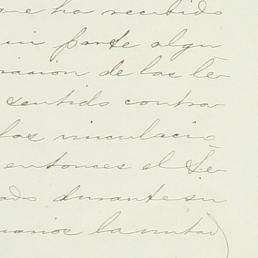 que ha recibido
in parte algu
racion de las le
sentido contra
las vinculacio
entonces el Se
ado durante su
narios la mitad)